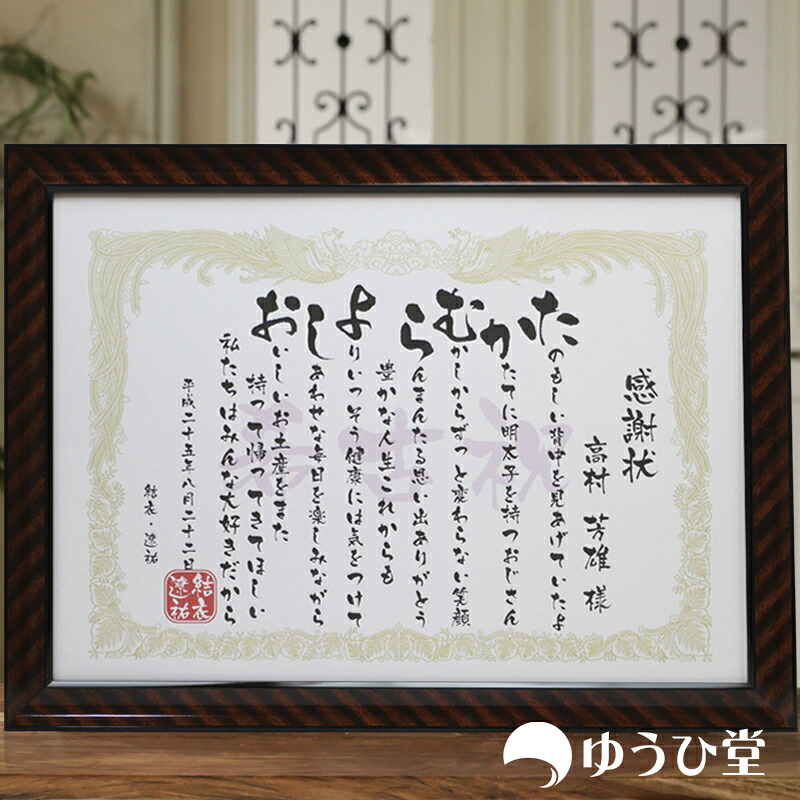 感謝状
高村 芳雄 様
たのもしい背中を見あげていたよ
かたてに明太子を持つおじさん
むかしからずっと変わらない笑顔
らんまんたる思い出ありがとう
豊かな人生これからも
よりいっそう健康には気をつけて
しあわせな毎日を楽しみながら
おいしいお土産をまた
持って帰ってきてほしい
私たちはみんな大好きだから
平成二十五年八月二十二日
結衣・遼祐
結衣
遼祐
祝古希
ゆうひ堂